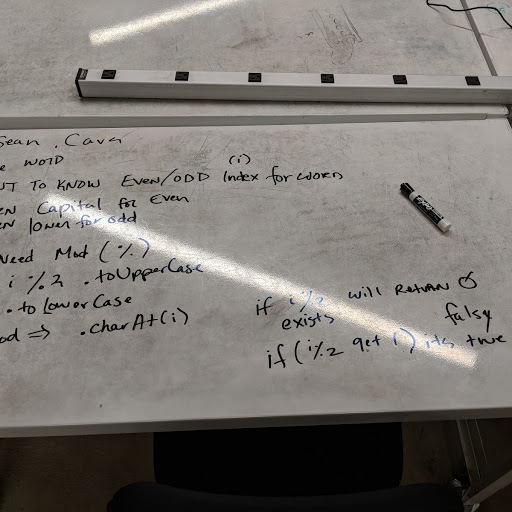 Sean . Cavn
e word
UT TO KNOW EVEN/ODD Index for word
(i)
EN Capital for Even
EN lower for odd
Need Mod (%)
i % 2 .toUpperCase
.toLowerCase
od => .charAt(i)
if i%2 will Return 0
exists falsy
if (i%2 get 1) its true